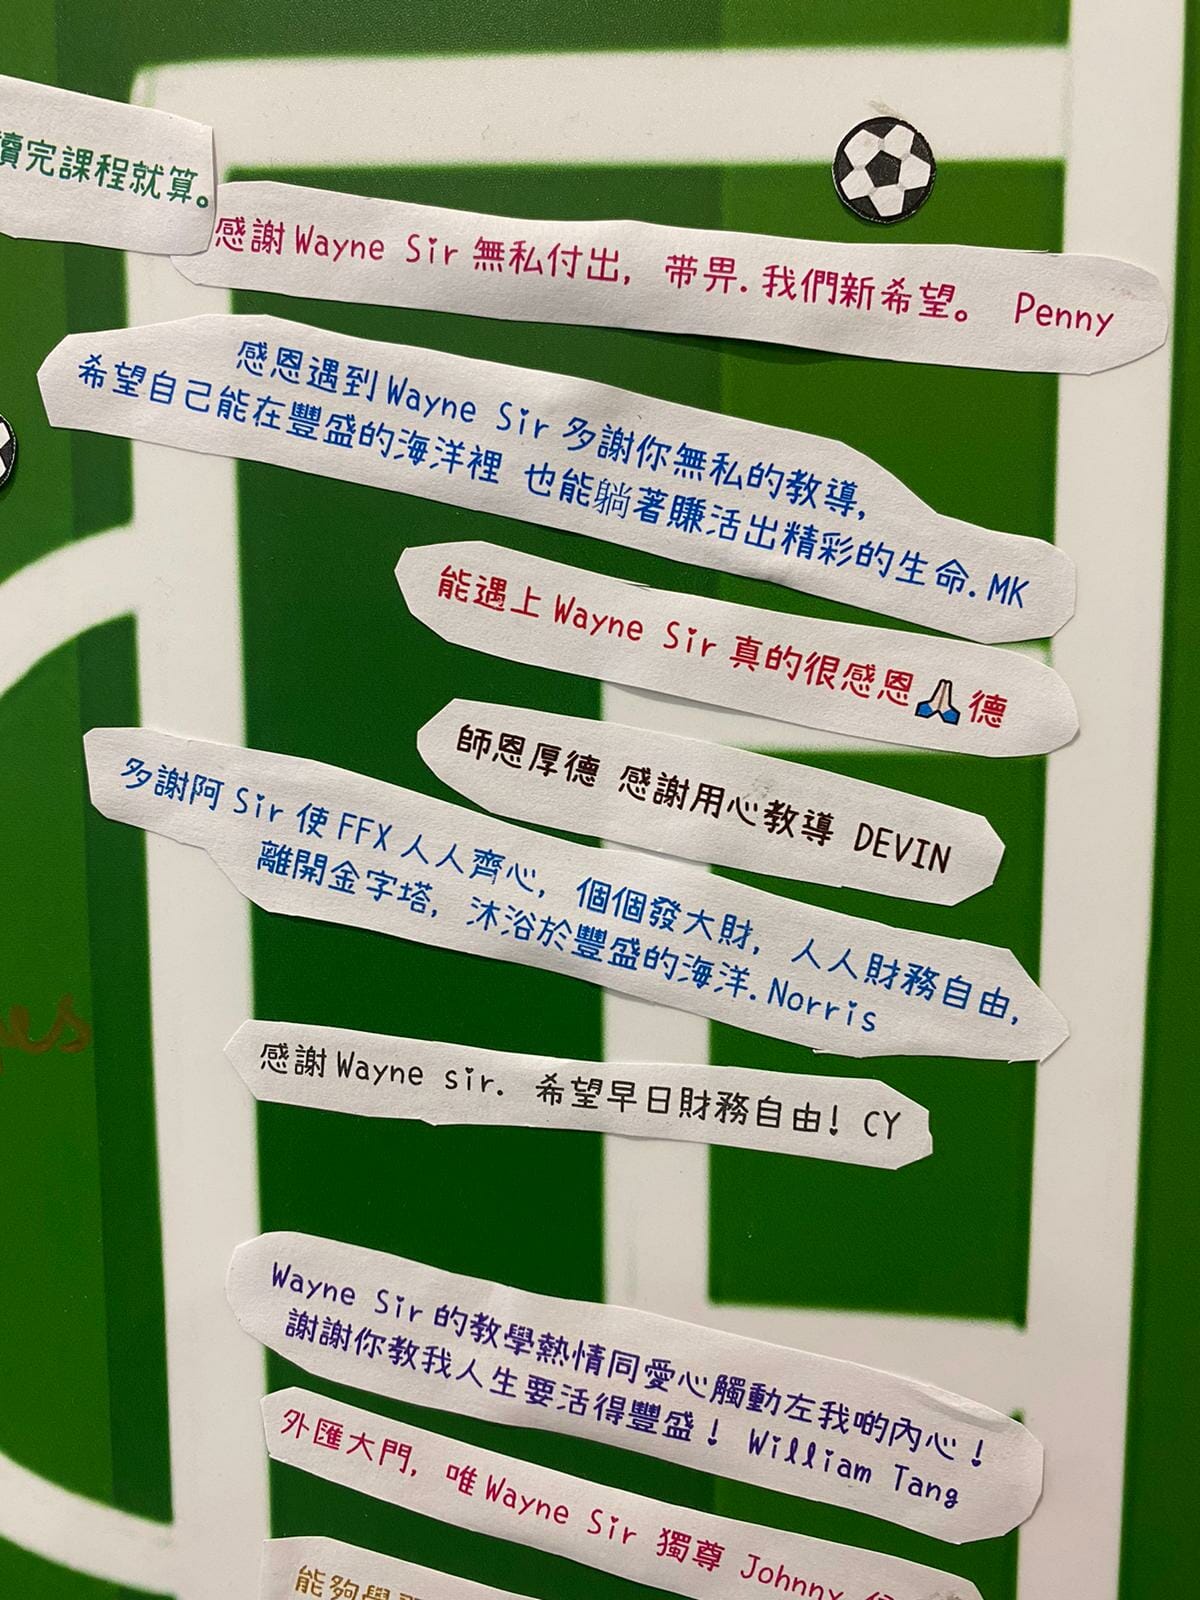 讀完課程就算。
感謝 Wayne Sir 無私付出, 帶畀.我們新希望。 Penny
感恩遇到 Wayne Sir 多謝你無私的教導,
希望自己能在豐盛的海洋裡 也能躺著賺活出精彩的生命.MK
能遇上 Wayne Sir 真的很感恩🙏🏻德
師恩厚德 感謝用心教導 DEVIN
多謝阿 Sir 使 FFX 人人齊心, 個個發大財, 人人財務自由,
離開金字塔, 沐浴於豐盛的海洋.Norris
感謝 Wayne sir. 希望早日財務自由! CY
Wayne Sir 的教學熱情同愛心觸動左我啲內心!
謝謝你教我人生要活得豐盛! William Tang
外匯大門, 唯 Wayne Sir 獨尊 Johnny
能夠學